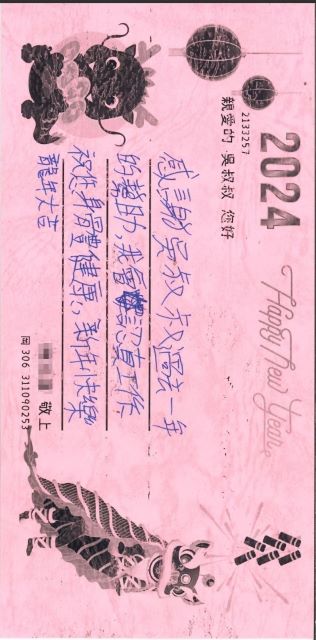 2024
Happy New Year
2133257
親愛的 吳叔叔 您好
感謝吳叔叔過去一年
的助,我會認真工作
祝您身體健康,新年快樂
龍年大吉
敬上
306 311090253